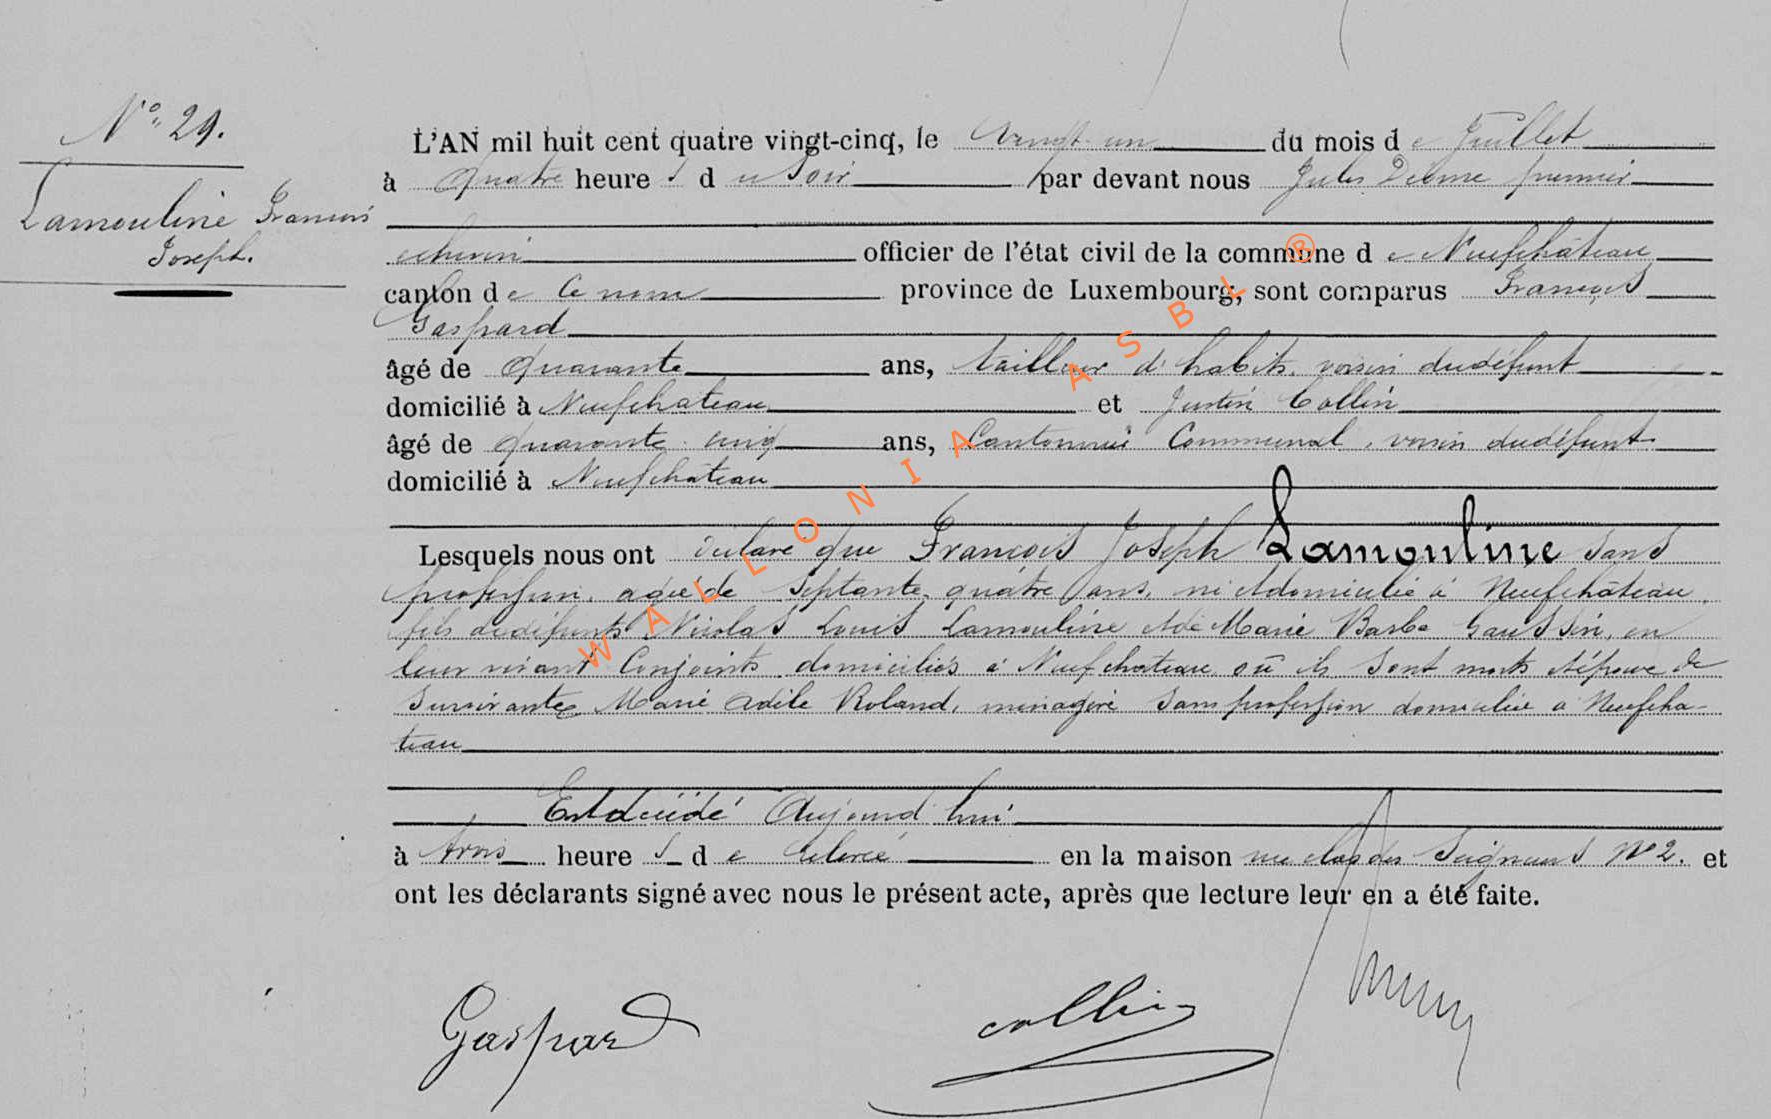 N° 29.
Lamouline François
Joseph.
L'AN mil huit cent quatre vingt-cinq, le vingt un du mois de Juillet
à Quatre heures du Soir par devant nous Jules premier
échevin officier de l'état civil de la commune de Neufchâteau
canton de Ce nom province de Luxembourg, sont comparus François
Gaspard
âgé de Quarante ans, tailleur d'habits, voisin du défunt
domicilié à Neufchateau et Justin Collin
âgé de quarante cinq ans, Cantonnier Communal, voisin du défunt
domicilié à Neufchateau
Lesquels nous ont déclaré que François Joseph Lamouline sans
profession, agé de Septante quatre ans, né et domicilié à Neufchâteau,
fils de défunts Nicolas Louis Lamouline et de Marie Barbe Gaussin, en
leur vivant Conjoints domiciliés à Neufchateau où ils sont morts et époux de
Survivante Marie Adèle Roland, ménagère sans profession domiciliée à Neufchâ-
teau
Est décédé Aujourd'hui
à trois heures de relevée en la maison rue clos des Seigneurs N° 2. et
ont les déclarants signé avec nous le présent acte, après que lecture leur en a été faite.
Gaspard
collin
WALLONIA ASBL ®